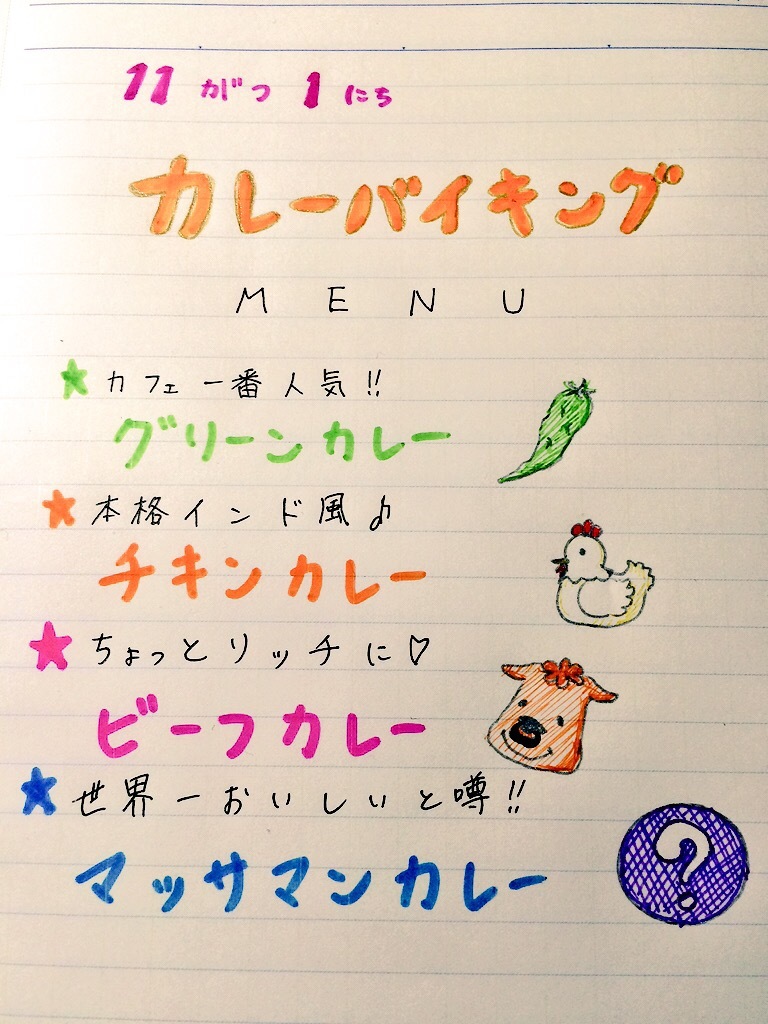 11がつ1にち
カレーバイキング
MENU
カフェ一番人気!!
グリーンカレー
本格インド風♪
チキンカレー
ちょっとリッチに♡
ビーフカレー
世界一おいしいと噂!!
マッサマンカレー
?